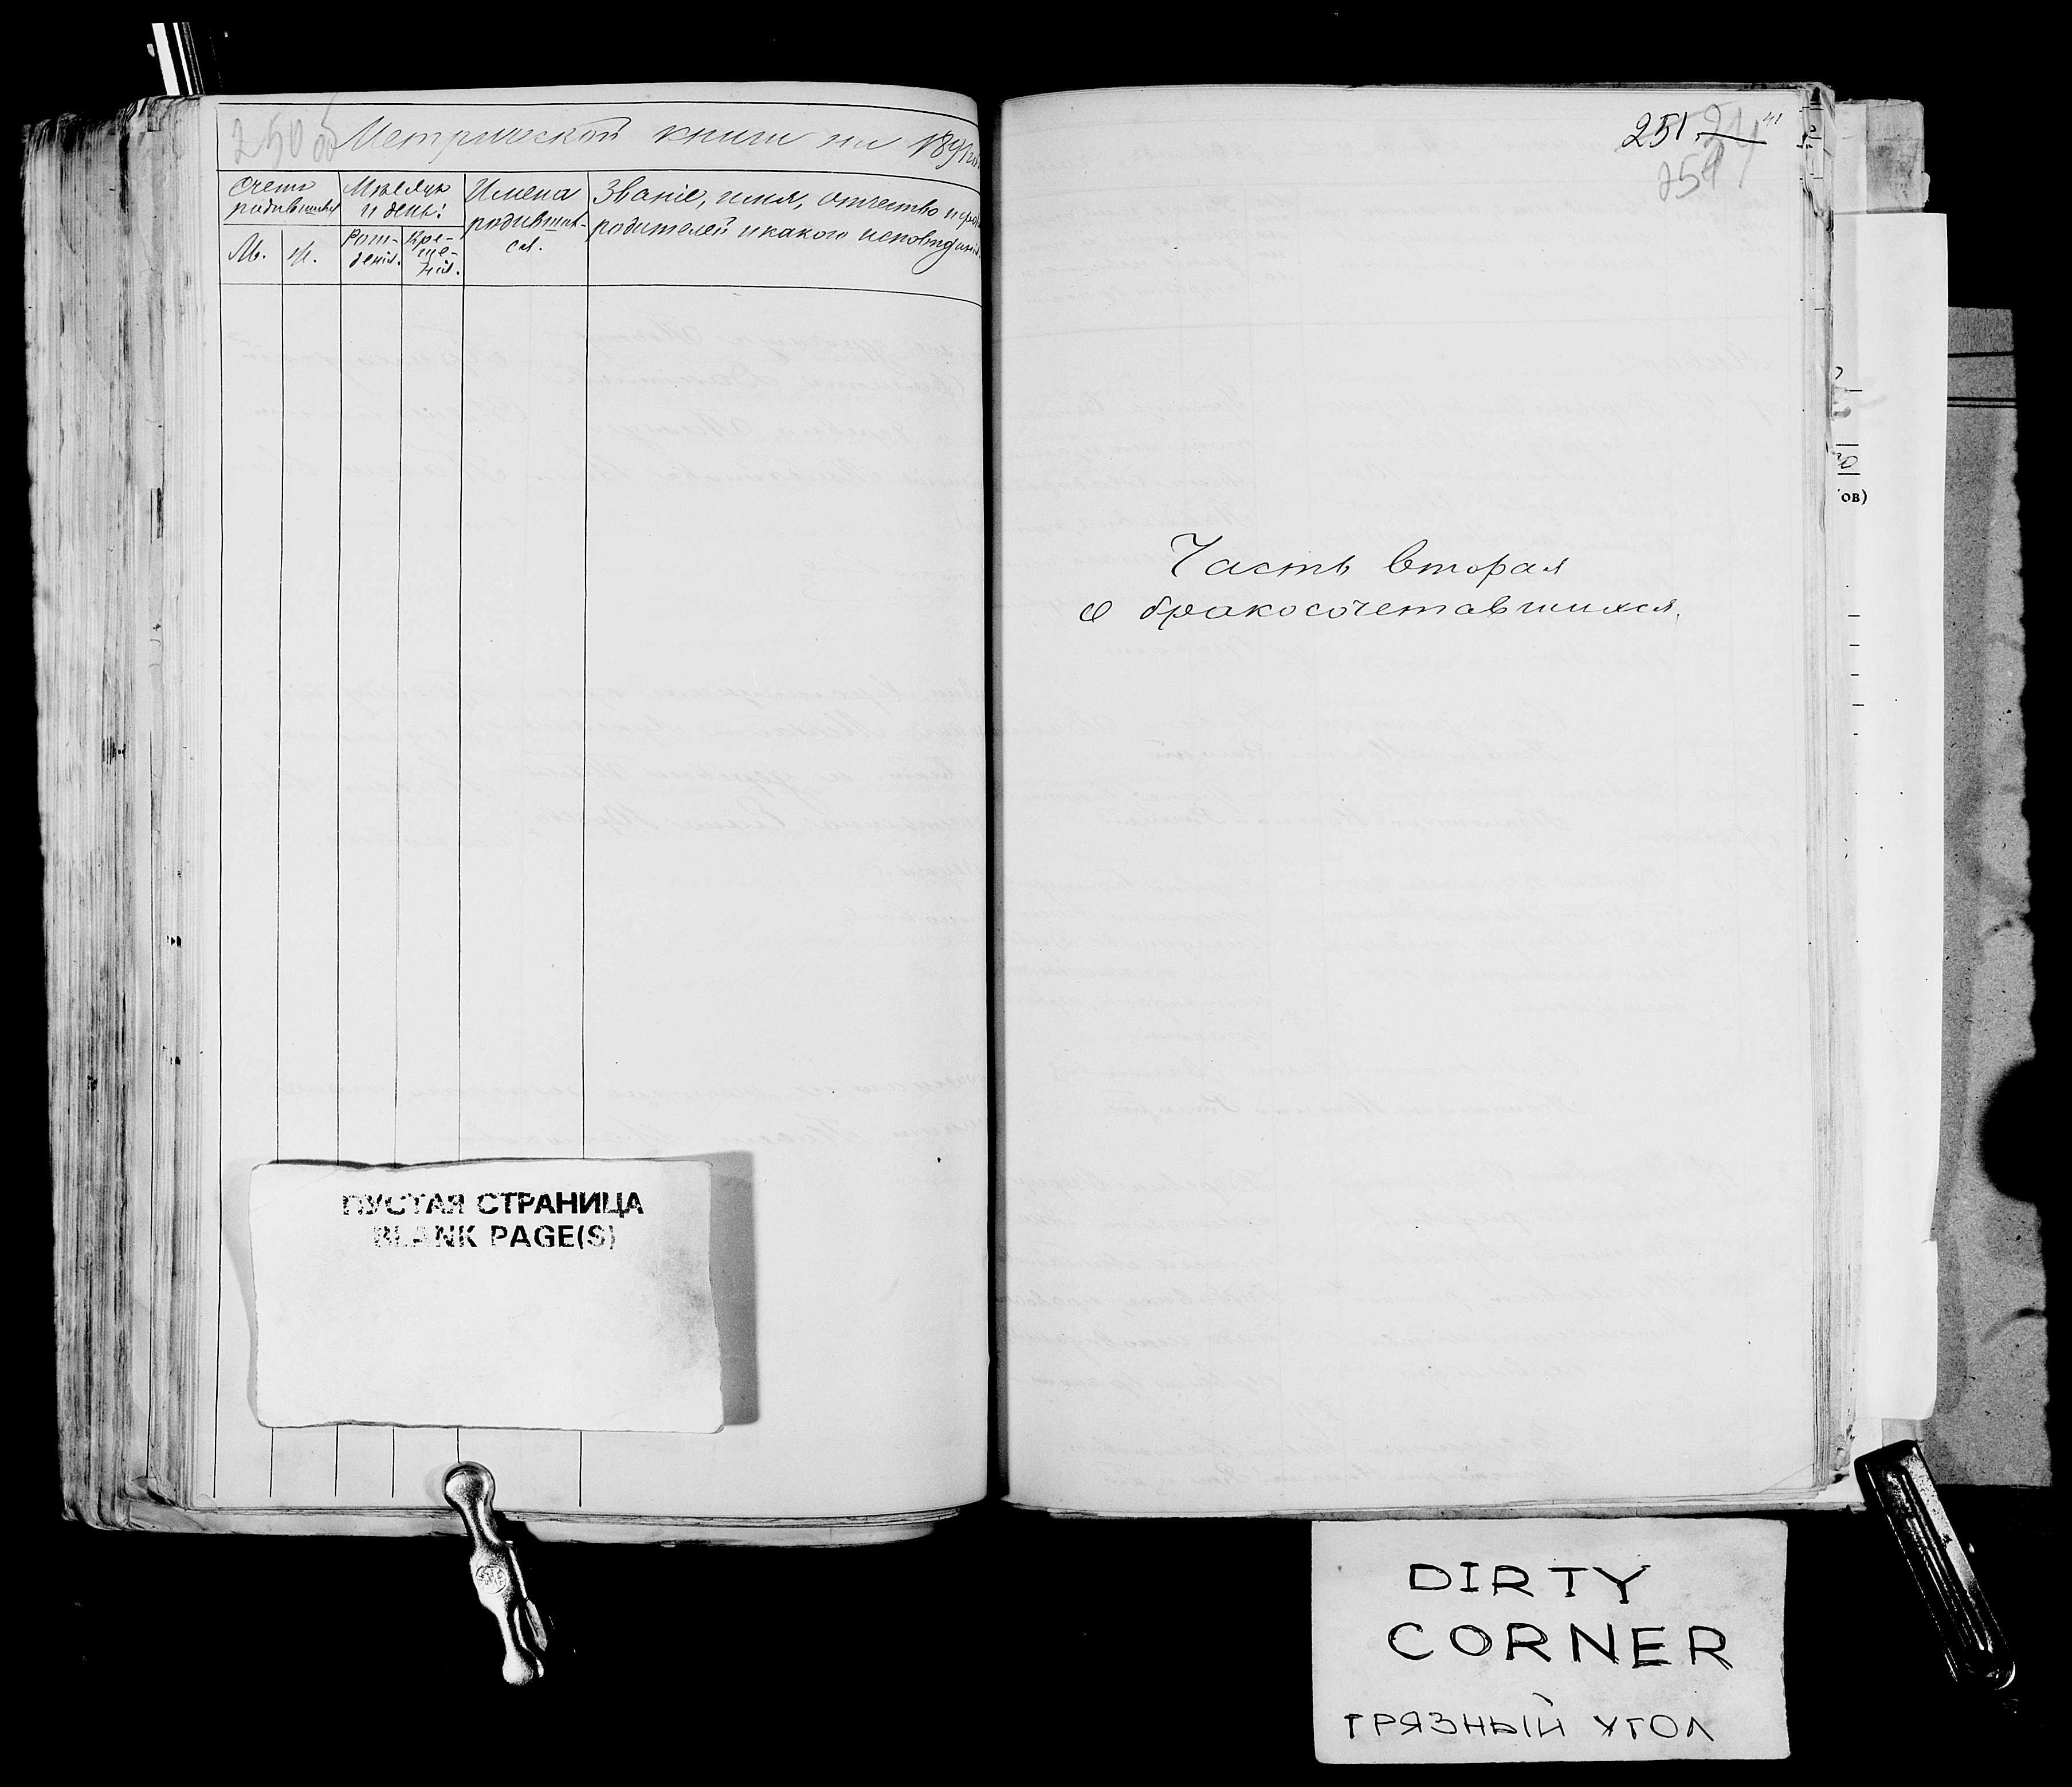 250об Метрической книги на 1891 г.
Счетъ
родившихся
Мѣсяцъ
и день:
Имена
родивших-
ся.
Званіе, имя, отчество и фам
родителей и какого исповѣданія.
М.
Ж.
Рож-
денія.
Кре-
ще-
нія.
ПУСТАЯ СТРАНИЦА
BLANK PAGE(S)
251
41
251
Часть вторая
О бракосочетавшихся.
ов)
DIRTY
CORNER
ГРЯЗНЫЙ УГОЛ